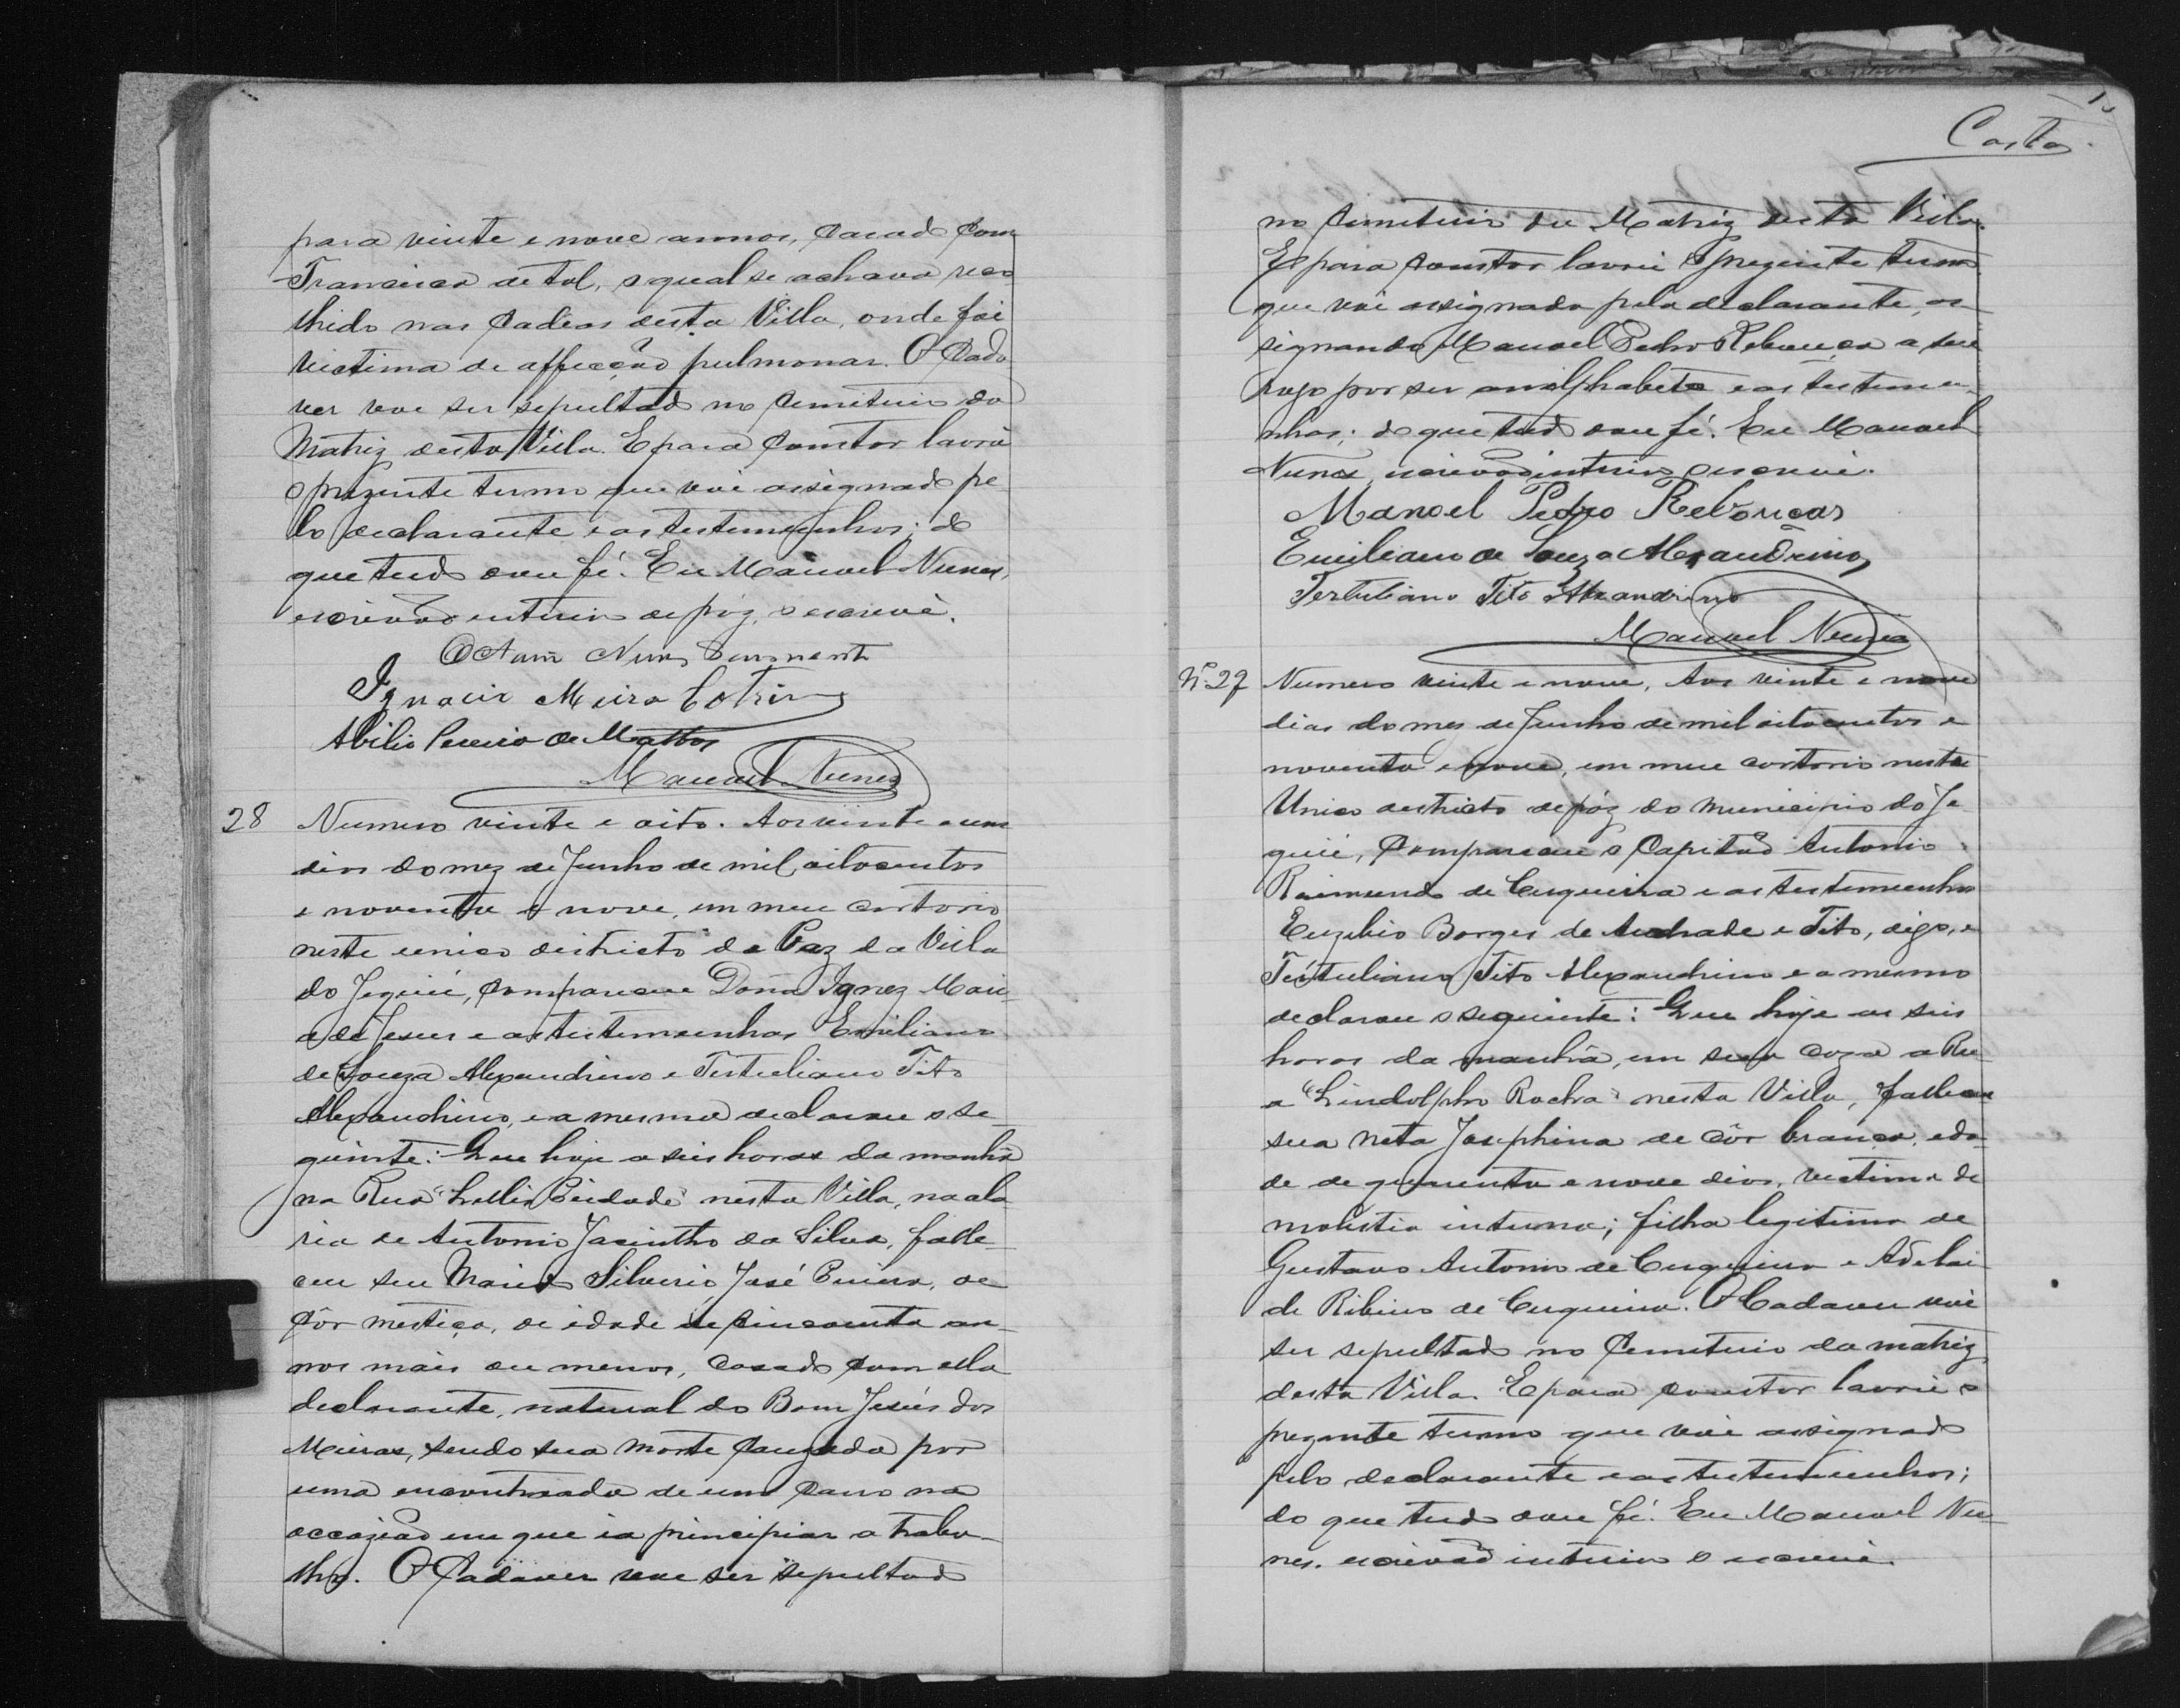 para vinte e nove annos, casado com
Francisca de tal, o qual se achava reco
lhido nas cadeas desta Villa, onde foi
victima de affecção pulmonar. O Cada
ver vae ser sepultado no Cemiterio da
Matriz desta Villa. E para constar lavrei
o prezente termo que vai assignado pe-
lo declarante e as testemunhas; do
que tudo dou fé. Eu Manoel Nunes,
escrivão interino de paz, o escrevi.
Nunes
Ignacio Meira Cotrim
Abilio Pereira de Mattos
Manoel Nunes
28 Numero vinte e oito. Aos vinte e um
dias do mez de Junho de mil oitocentos
e noventa e nove, em meu cartorio
neste unico districto de Paz da Villa
do Jequié, compareceu Dona Ignez Mari-
a de Jesus e as testemunhas Emiliano
de Souza Alexandrino e Tertuliano Tito
Alexandrino, e a mesma declarou o se-
guinte: Que hoje a seis horas da manhã
na Rua nesta Villa, na ola
ria de Antonio Jacintho da Silva, falle-
ceu seu Marido Silverio José de
côr mestiça, de idade de cincoenta an-
nos mais ou menos, casado com ella
declarante, natural do Bom Jesús dos
Meiras, sendo sua morte cauzada por
uma encontroada de um carro na
occazião em que ia principiar a traba-
lhar. O Cadaver vae ser sepultado
Costa
no Cemiterio da Matriz desta Villa.
E para constar lavrei o prezente termo
que vai assignado pela declarante, as-
signando Manoel Pedro Rebouças a seu
rogo por ser analphabeta e as testemu-
nhas; do que tudo dou fé. Eu Manoel
Nunes, escrivão interino o escrevi.
Manoel Pedro Rebouças
Emiliano de Souza Alexandrino
Tertuliano Tito Alexandrino
Manoel Nunes
Nº 29 Numero vinte e nove. Aos vinte e nove
dias do mez de Junho de mil oitocentos e
noventa e nove, em meu cartorio neste
Unico destricto de páz do municipio do Je-
quié, compareceu o Capitão Antonio
Raimundo de Cerqueira e as testemunhas
Euzebio Borges de Andrade e Tito, digo, e
Tertuliano Tito Alexandrino e o mesmo
declarou o seguinte: Que hoje as seis
horas da manhã, em sua caza a Ru-
a "Lindolpho Rocha" nesta Villa, falleceu
sua neta Josephina de côr branca, ida-
de de quarenta e nove dias, victima de
molestia interna; filha legitima de
Gustavo Antonio de Cerqueira e Adelai-
de Ribeiro de Cerqueira. O Cadaver vai
ser sepultado no Cemiterio da matriz
desta Villa. E para constar lavrei o
prezente termo que vai assignado
pelo declarante e as testemunhas;
do que tudo dou fé. Eu Manoel Nu-
nes, escrivão interino o escrevi.